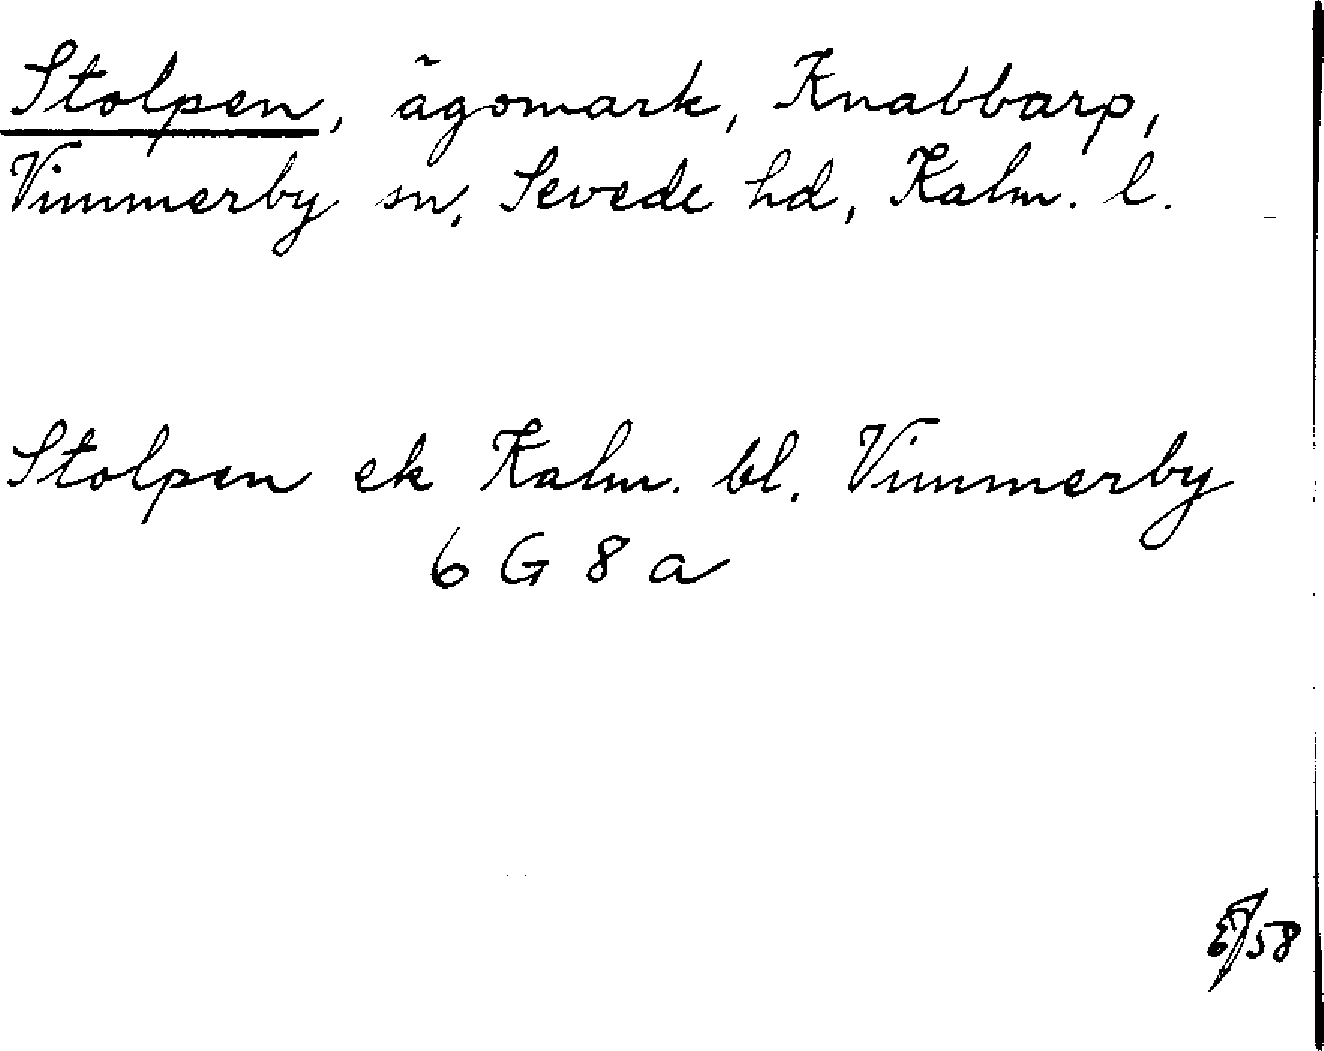 Stolpen, ägomark, Knabbarp,
Vimmerby sn, Sevede hd, Kalm. l.
Stolpen ek Kalm. bl. Vimmerby
6 G 8 a
/58